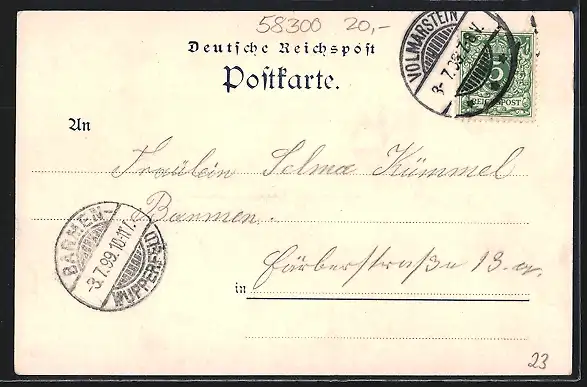 58300 20,-
Deutsche Reichspost
Postkarte.
VOLMARSTEIN
3.7.99. 7-8N.
5
REICHSPOST
An
Fräulein Selma Kümmel
Barmen.
Färberstraße 13.a.
in
BARMEN-
3.7.99.10-11V.
WUPPERFELD
23